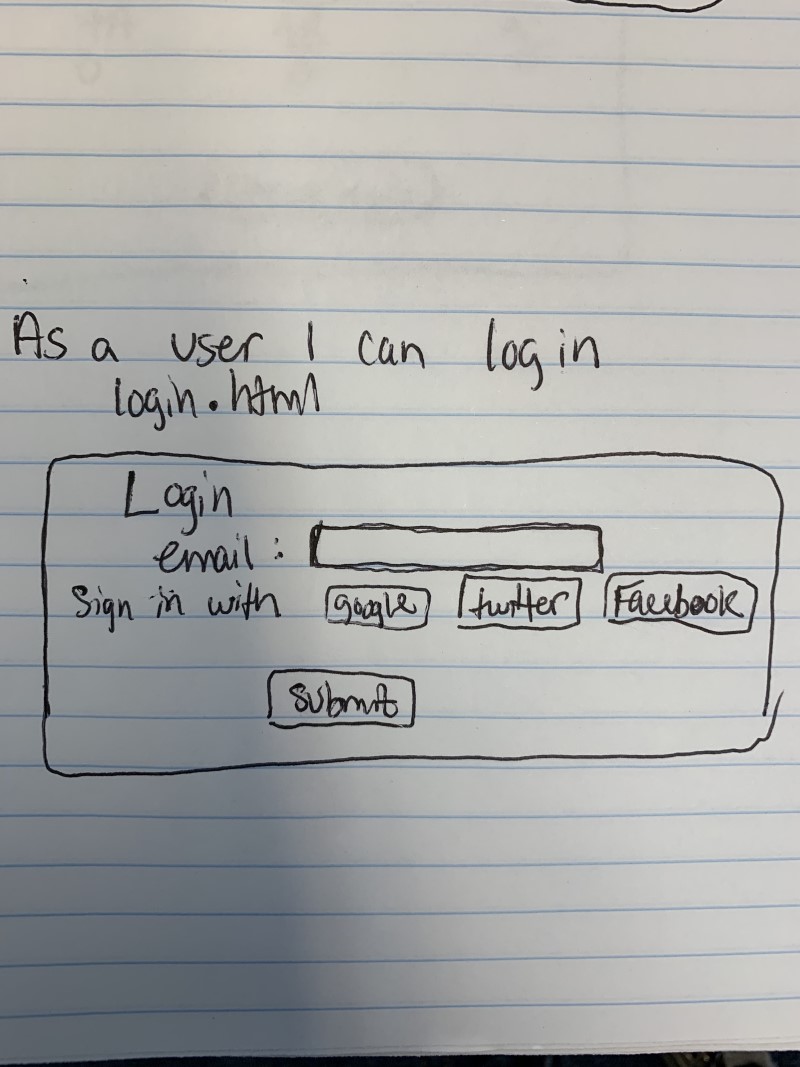 As a user I can log in
login.html
Login
email:
Sign in with google twitter Facebook
Submit